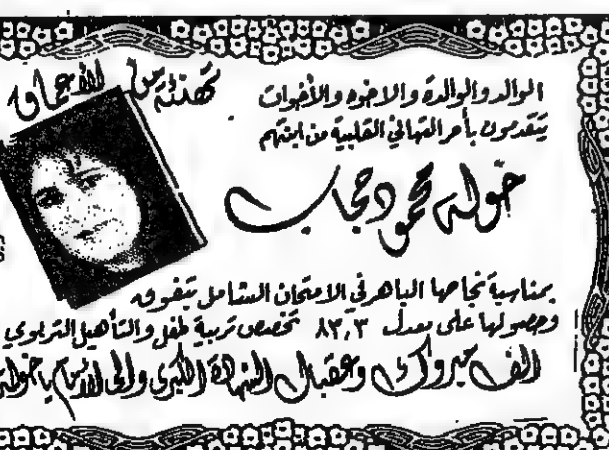 تهنئة من الأعماق
الوالد والوالدة والاخوه والأخوات
يتقدمون بأحر التهاني القلبية من ابنتهم
خوله محمود حجاب
بمناسبة نجاحها الباهر في الامتحان الشامل بتفوق
وحصولها على معدل ٨٣,٣ تخصص تربية طفل والتأهيل التربوي
الف مبروك وعقبال الشهادة الكبرى والى الأمام يا خولة